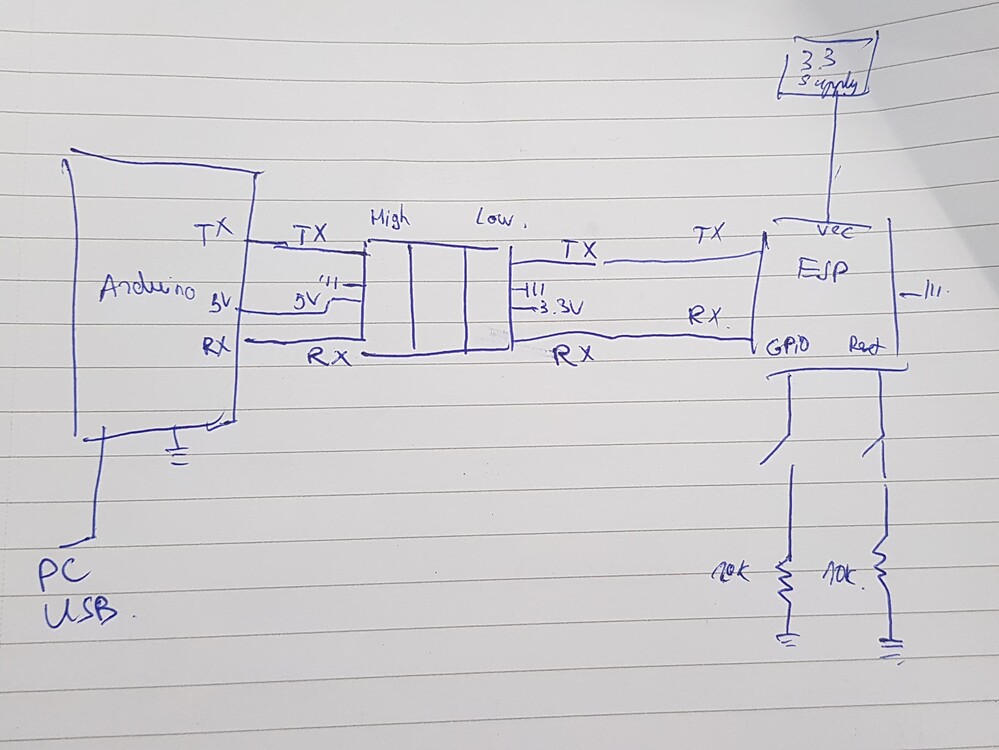 3.3
Supply
High
Low.
TX
TX
TX
TX
Vcc
ESP
Arduino
5V
5V
3.3V
RX
RX
RX
RX.
GPiO
Rest
10K
10K.
PC
USB.